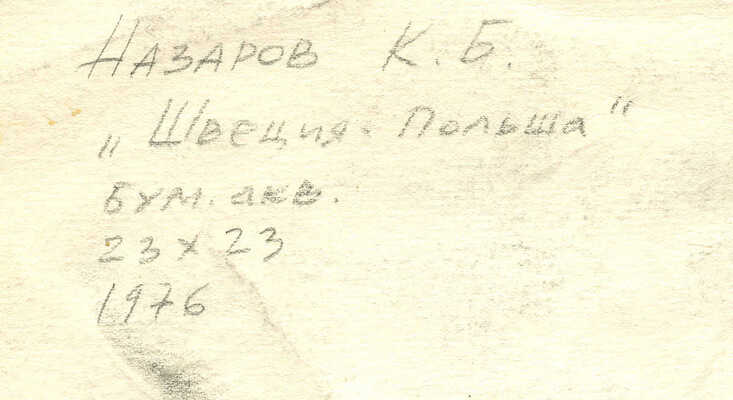 Назаров К. Б.
„Швеция - Польша"
бум. акв.
23 x 23
1976